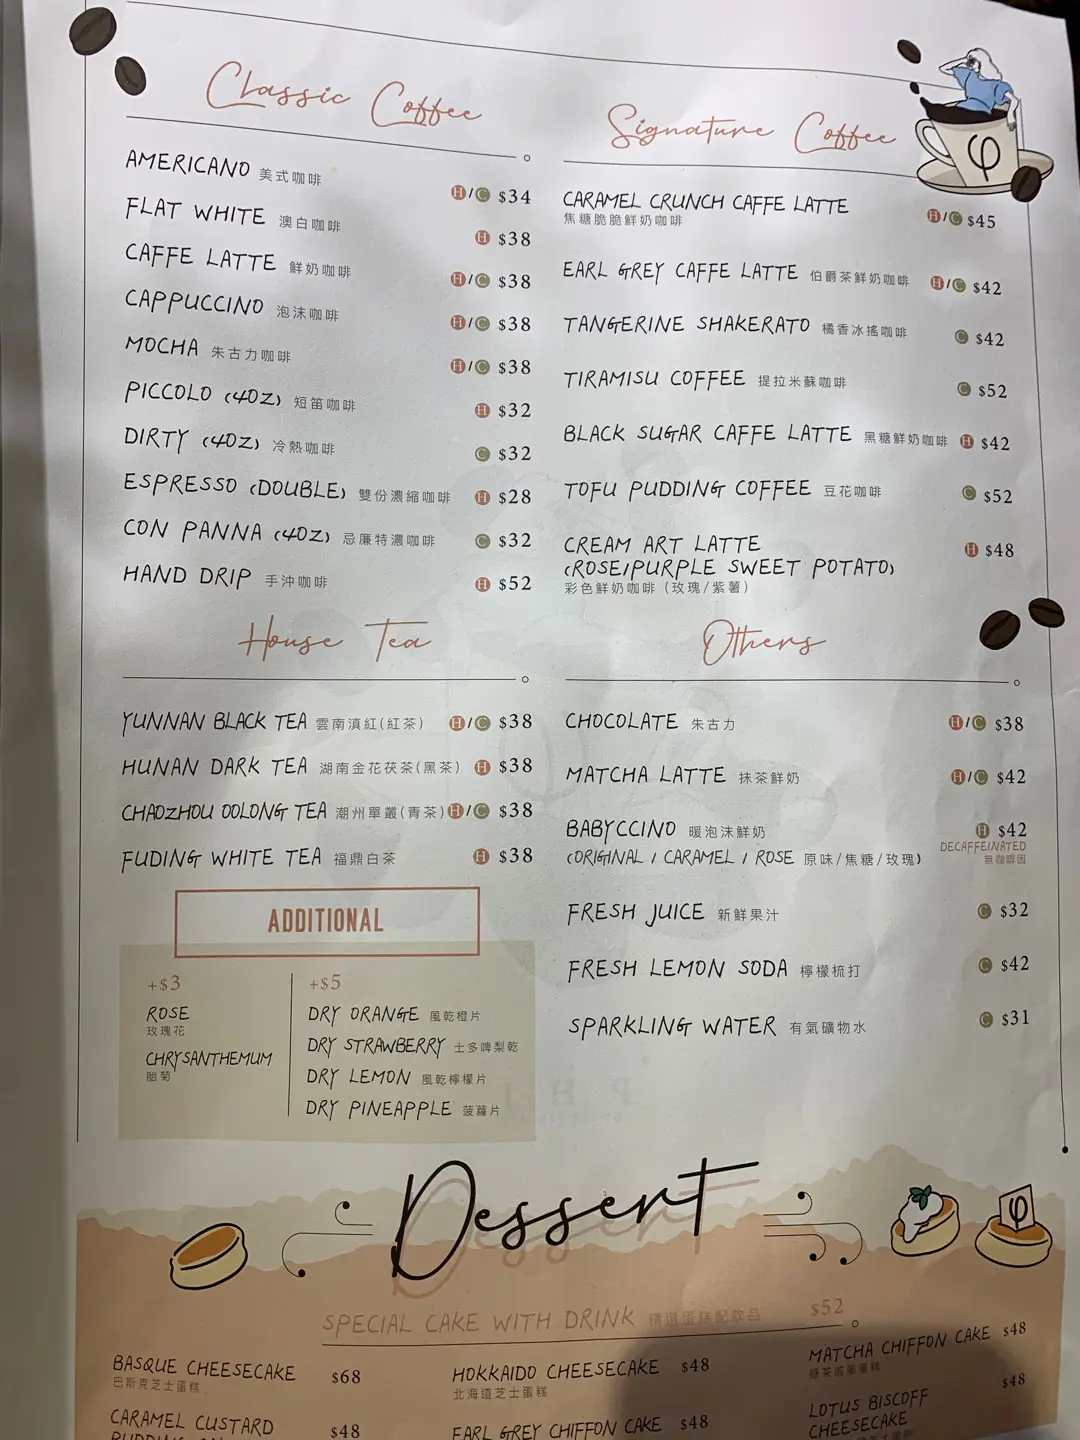 Classic Coffee
AMERICANO 美式咖啡 H/C $34
FLAT WHITE 澳白咖啡 H $38
CAFFE LATTE 鮮奶咖啡 H/C $38
CAPPUCCINO 泡沫咖啡 H/C $38
MOCHA 朱古力咖啡 H/C $38
PICCOLO (4OZ) 短笛咖啡 H $32
DIRTY (4OZ) 冷熱咖啡 C $32
ESPRESSO (DOUBLE) 雙份濃縮咖啡 H $28
CON PANNA (4OZ) 忌廉特濃咖啡 C $32
HAND DRIP 手沖咖啡 H $52
Signature Coffee
CARAMEL CRUNCH CAFFE LATTE H/C $45
焦糖脆脆鮮奶咖啡
EARL GREY CAFFE LATTE 伯爵茶鮮奶咖啡 H/C $42
TANGERINE SHAKERATO 橘香冰搖咖啡 C $42
TIRAMISU COFFEE 提拉米蘇咖啡 C $52
BLACK SUGAR CAFFE LATTE 黑糖鮮奶咖啡 H $42
TOFU PUDDING COFFEE 豆花咖啡 C $52
CREAM ART LATTE H $48
(ROSE/PURPLE SWEET POTATO)
彩色鮮奶咖啡 (玫瑰/紫薯)
House Tea
YUNNAN BLACK TEA 雲南滇紅(紅茶) H/C $38
HUNAN DARK TEA 湖南金花茯茶(黑茶) H $38
CHAOZHOU OOLONG TEA 潮州單叢(青茶) H/C $38
FUDING WHITE TEA 福鼎白茶 H $38
Others
CHOCOLATE 朱古力 H/C $38
MATCHA LATTE 抹茶鮮奶 H/C $42
BABYCCINO 暖泡沫鮮奶 H $42
DECAFFEINATED
無咖啡因
(ORIGINAL / CARAMEL / ROSE 原味/焦糖/玫瑰)
FRESH JUICE 新鮮果汁 C $32
FRESH LEMON SODA 檸檬梳打 C $42
SPARKLING WATER 有氣礦物水 C $31
ADDITIONAL
+$3
ROSE
玫瑰花
CHRYSANTHEMUM
胎菊
+$5
DRY ORANGE 風乾橙片
DRY STRAWBERRY 士多啤梨乾
DRY LEMON 風乾檸檬片
DRY PINEAPPLE 菠蘿片
Dessert
SPECIAL CAKE WITH DRINK 精選蛋糕配飲品 $52
BASQUE CHEESECAKE $68
巴斯克芝士蛋糕
CARAMEL CUSTARD $48
HOKKAIDO CHEESECAKE $48
北海道芝士蛋糕
EARL GREY CHIFFON CAKE $48
MATCHA CHIFFON CAKE $48
綠茶戚風蛋糕
LOTUS BISCOFF $48
CHEESECAKE